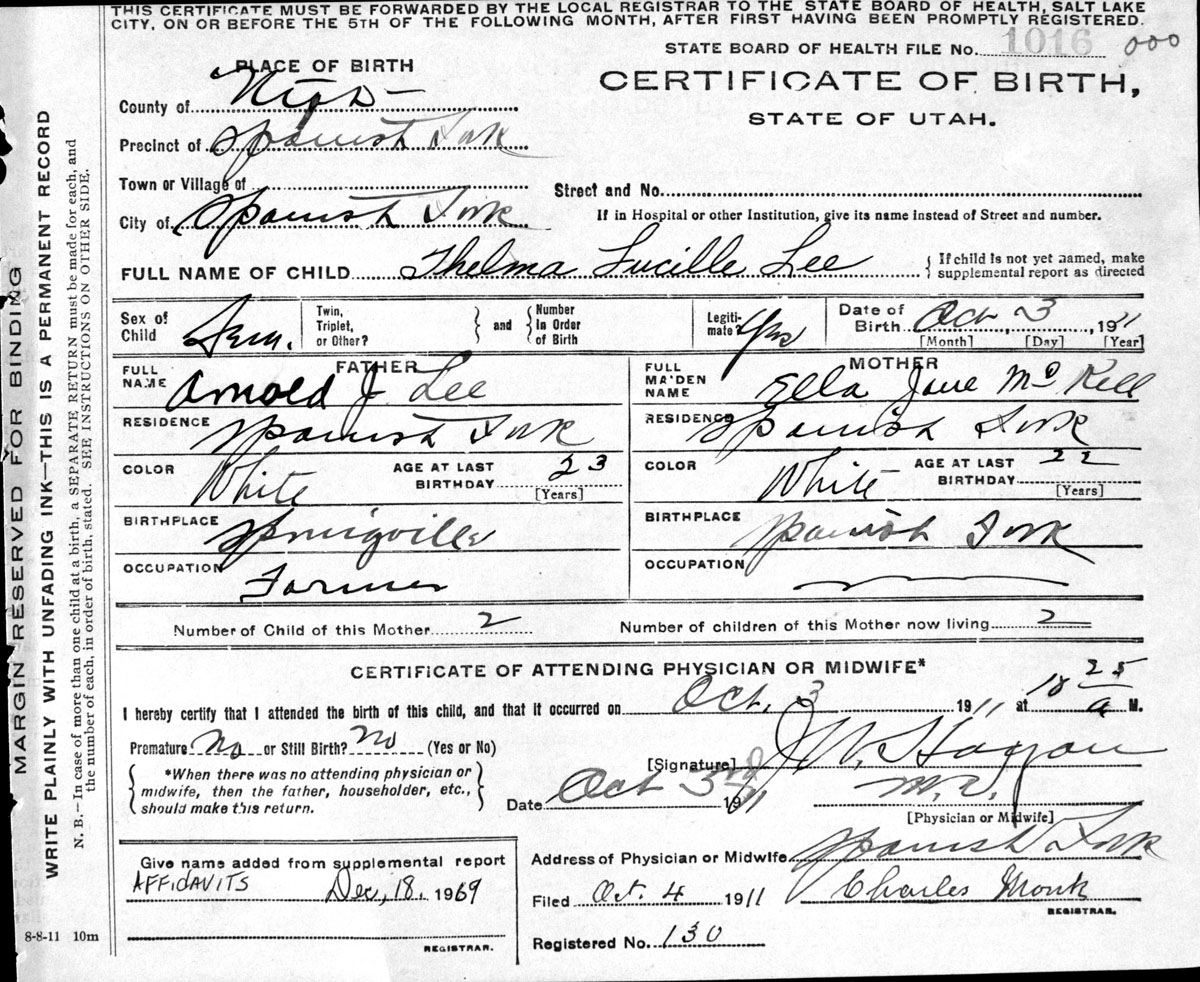 THIS CERTIFICATE MUST BE FORWARDED BY THE LOCAL REGISTRAR TO THE STATE BOARD OF HEALTH, SALT LAKE
CITY, ON OR BEFORE THE 5TH OF THE FOLLOWING MONTH, AFTER FIRST HAVING BEEN PROMPTLY REGISTERED.
STATE BOARD OF HEALTH FILE No. 1016 000
PLACE OF BIRTH
CERTIFICATE OF BIRTH,
STATE OF UTAH.
County of
Precinct of Spanish Fork
Town or Village of
Street and No.
City of Spanish Fork
If in Hospital or other Institution, give its name instead of Street and number.
FULL NAME OF CHILD Thelma Lucille Lee
{ If child is not yet named, make supplemental report as directed
Sex of Child Fem.
Twin, Triplet, or Other? } and { Number In Order of Birth
Legitimate Yes
Date of Birth Oct 3, 1911
[Month] [Day] [Year]
FATHER
FULL NAME Arnold J Lee
RESIDENCE Spanish Fork
COLOR White AGE AT LAST BIRTHDAY 23 [Years]
BIRTHPLACE Springville
OCCUPATION Farmer
MOTHER
FULL MAIDEN NAME Ella Jane McKell
RESIDENCE Spanish Fork
COLOR White AGE AT LAST BIRTHDAY 22 [Years]
BIRTHPLACE Spanish Fork
OCCUPATION
Number of Child of this Mother 2 Number of children of this Mother now living 2
CERTIFICATE OF ATTENDING PHYSICIAN OR MIDWIFE*
I hereby certify that I attended the birth of this child, and that it occurred on Oct. 3 1911 at 10 25 a M.
Premature No or Still Birth? No (Yes or No)
{ *When there was no attending physician or midwife, then the father, householder, etc., should make this return. }
[Signature] J W. Hagan
Date Oct 3rd 1911 M.D.
[Physician or Midwife]
Give name added from supplemental report
AFFIDAVITS Dec, 18, 1969
REGISTRAR.
Address of Physician or Midwife Spanish Fork
Filed Oct. 4 1911 Charles Monk
REGISTRAR.
Registered No. 130
8-8-11 10m
MARGIN RESERVED FOR BINDING
WRITE PLAINLY WITH UNFADING INK—THIS IS A PERMANENT RECORD
N. B.—In case of more than one child at a birth, a SEPARATE RETURN must be made for each, and
the number of each, in order of birth, stated. SEE INSTRUCTIONS ON OTHER SIDE.